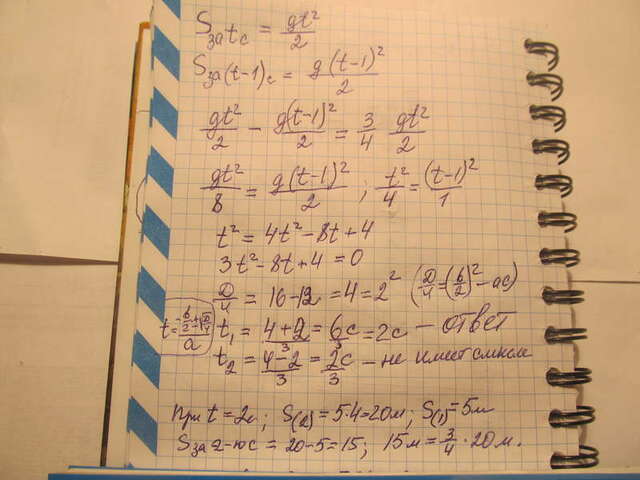 S за t c = gt²/2
S за (t-1) c = g(t-1)²/2
gt²/2 - g(t-1)²/2 = 3/4 gt²/2
gt²/8 = g(t-1)²/2 ; t²/4 = (t-1)²/1
t² = 4t² - 8t + 4
3t² - 8t + 4 = 0
D/4 = 16 - 12 = 4 = 2² (D/4 = (b/2)² - ac)
t = (-b/2 ± √D/4)/a
t₁ = (4+2)/3 = 6c/3 = 2c – ответ
t₂ = (4-2)/3 = 2c/3 – не имеет смысла
При t = 2c; S(2) = 5·4 = 20м; S(1) = 5м
S за 2-юс = 20-5 = 15; 15м = 3/4 · 20м.